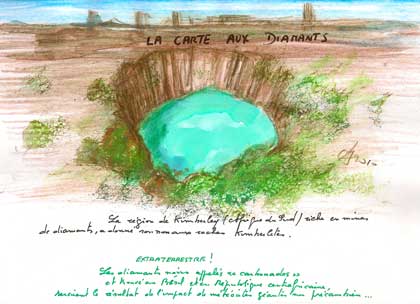 LA CARTE AUX DIAMANTS
La région de Kimberley (Afrique du Sud) riche en mines
de diamants, a donné son nom aux roches Kimberlites.
EXTRATERRESTRE !
Les diamants noirs appelés « carbonados »
et trouvés au Brésil et en République centrafricaine,
seraient le résultat de l'impact de météorites géantes au précambrien...